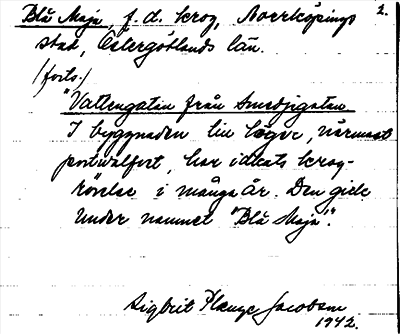 Blå Maja, f.d. krog, Norrköpings 2.
stad, Östergötlands län.
(forts.)
"Vattengatan från Smedjegatan
I byggnaden till höger, närmast
portvalvet, har idkats krog-
rörelse i många år. Den gick
under namnet "Blå Maja"."
Sigbrit Plænge Jacobson
1942.